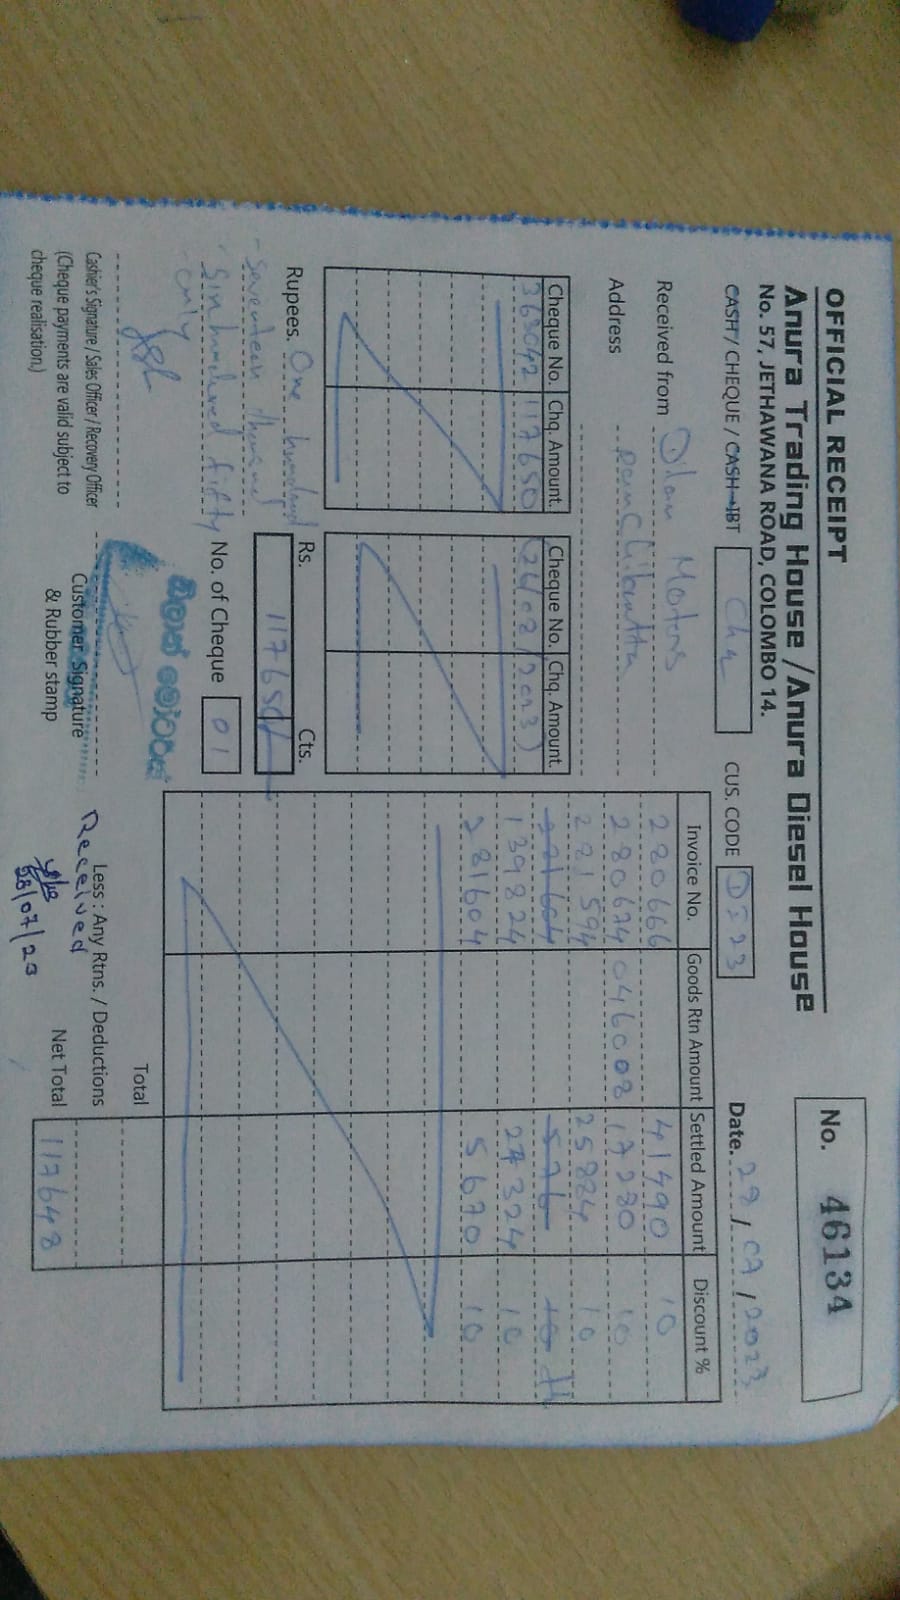 OFFICIAL RECEIPT
No. 46134
Anura Trading House / Anura Diesel House
No. 57, JETHAWANA ROAD, COLOMBO 14.
CASH / CHEQUE / CASH-IBT Chq CUS. CODE DI23 Date. 29/07/2023
Received from Dilan Motors
Address
Cheque No. Chq. Amount. Cheque No. Chq. Amount.
363042 117650 (24/02/2023)
Invoice No. Goods Rtn Amount Settled Amount Discount %
280666 41490 10
280674 046008 17280 10
281594 25884 10
281604 576 10
139824 27324 10
281604 5670 10
Rupees. One hundred
seventeen thousand
six hundred fifty
only
Rs. Cts.
117650/
No. of Cheque 01
Total
Less : Any Rtns. / Deductions
Net Total 117648
Cashier's Signature / Sales Officer / Recovery Officer
(Cheque payments are valid subject to
cheque realisation.)
Customer Signature
& Rubber stamp
Received
28/07/23